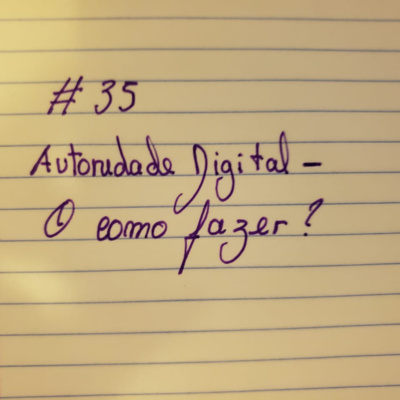 # 35
Autoridade Digital -
O como fazer?